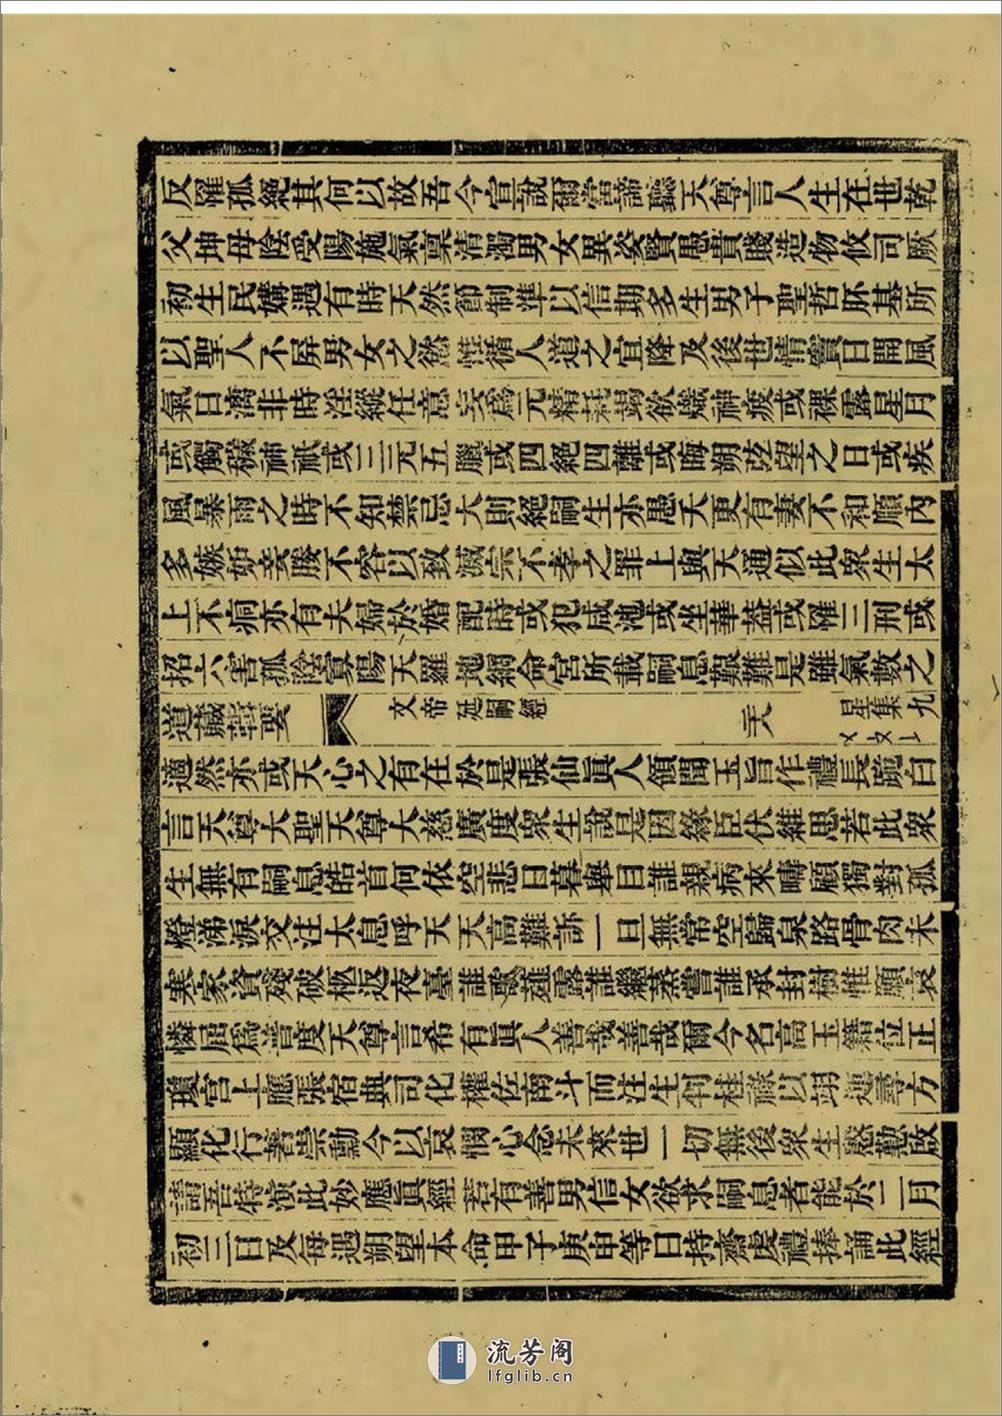 反罹孤絕其何以故吾今宣說爾當諦聽天尊言人生在世乾
父坤母陰受陽施氣稟清濁男女異姿賢愚貴賤造物攸司厥
初生民媾遇有時天然節制準以信期多生男子聖哲胚基所
以聖人不屏男女之慾惟循人道之宜降及後世情竇日開風
氣日漓非時淫縱任意妄爲元精耗竭欲熾神疲或裸露星月
或觸穢神祇或三元五臘或四絕四離或晦朔弦望之日或疾
風暴雨之時不知禁忌大則絕嗣生亦愚夭更有妻不和順內
多嫉妒妾媵不容以致滅宗不孝之罪上與天通似此眾生太
上不痌亦有夫婦於婚配時或犯咸池或坐華蓋或罹三刑或
招六害孤陰寡陽天羅地網命宮所載嗣息艱難是雖氣數之
道藏輯要 文帝延嗣經 星集九
適然亦或天心之有在於是張仙眞人領聞玉旨作禮長跪白
言天尊大聖天尊大慈廣度眾生說是因緣臣伏維思若此眾
生無有嗣息皓首何依空悲日暮舉目誰親病來疇顧獨對孤
燈涕淚交注太息呼天天高難訴一旦無常空歸泉路骨肉未
寒家資殘破柩返夜臺誰歌薤露誰繼蒸嘗誰承封樹惟願哀
憐屈爲普度天尊言希有眞人善哉善哉爾今名高玉籍位正
瓊宮上應張宿典司化權佐南斗而注生桂祿以翊方
顯化行著崇勳今以哀憫心念未來世一切無後眾生慇懃啟
請吾特演此妙應眞經若有善男信女欲求嗣息者能於二月
初三日及每遇朔望本命甲子庚申等日持齋虔禮捧誦此經
流芳阁
lfglib.cn